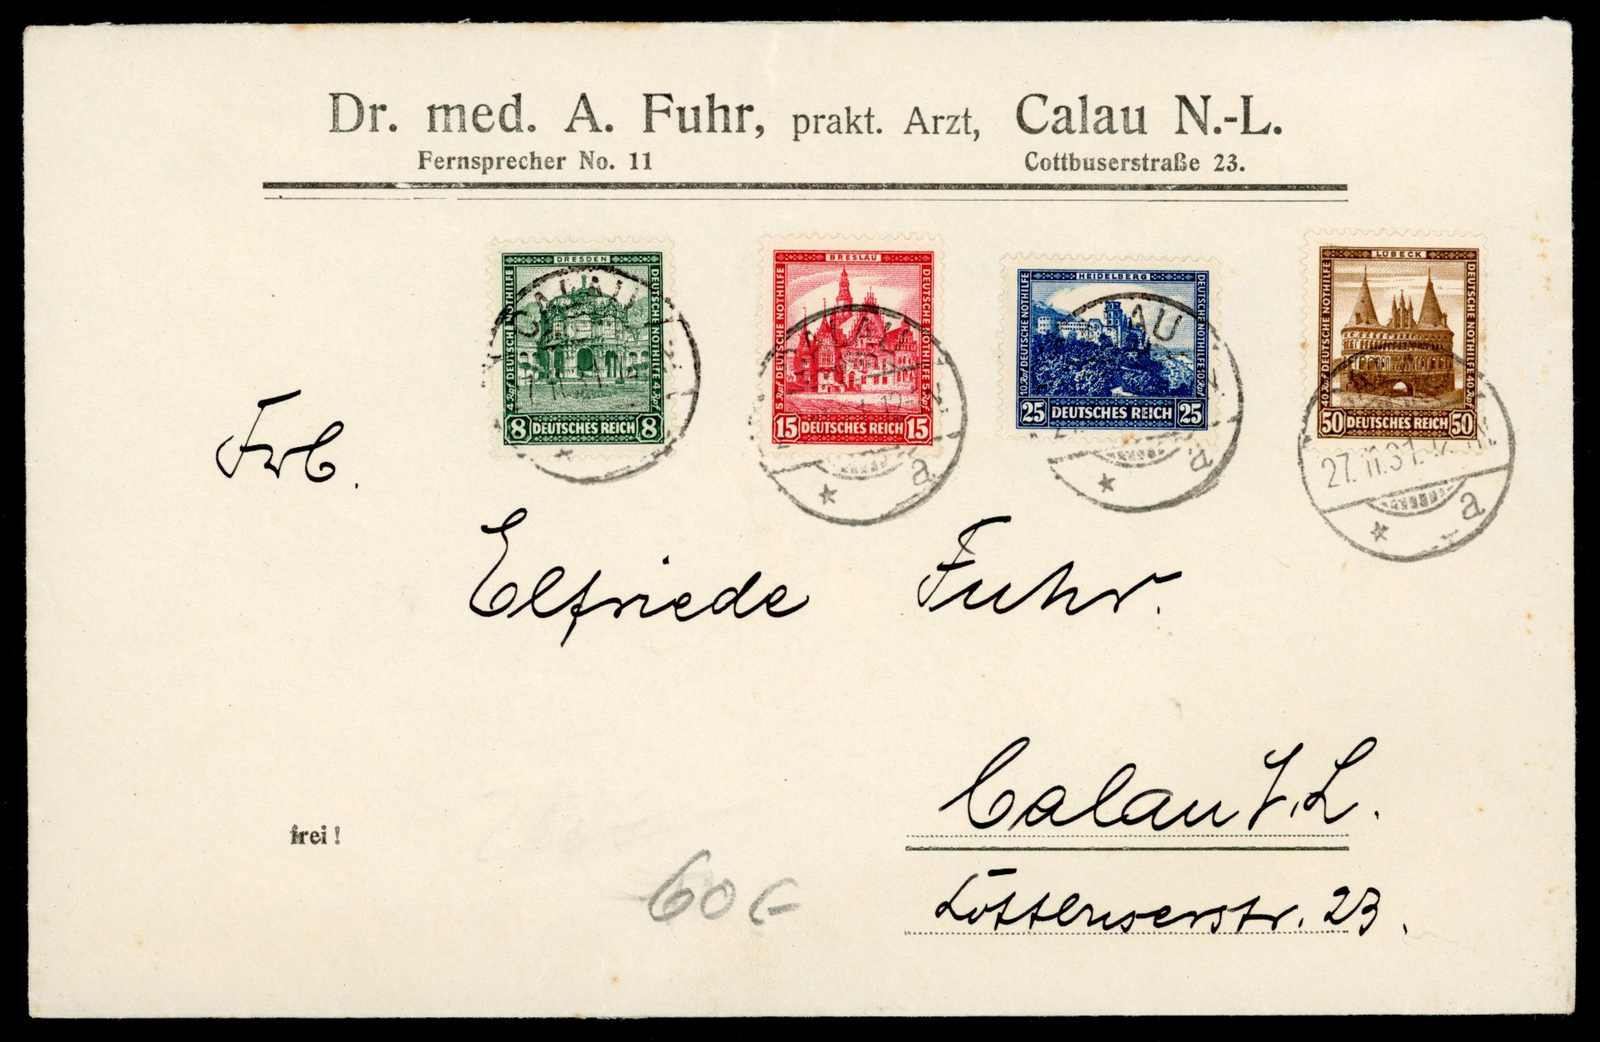 Dr. med. A. Fuhr, prakt. Arzt, Calau N.-L.
Fernsprecher No. 11
Cottbuserstraße 23.
DRESDEN
4 Rpf DEUTSCHE NOTHILFE
DEUTSCHE NOTHILFE 4 Rpf
8 DEUTSCHES REICH 8
BRESLAU
5 Rpf DEUTSCHE NOTHILFE
DEUTSCHE NOTHILFE 5 Rpf
15 DEUTSCHES REICH 15
HEIDELBERG
10 Rpf DEUTSCHE NOTHILFE
DEUTSCHE NOTHILFE 10 Rpf
25 DEUTSCHES REICH 25
LÜBECK
40 Rpf DEUTSCHE NOTHILFE
DEUTSCHE NOTHILFE 40 Rpf
50 DEUTSCHES REICH 50
CALAU
CALAU
a
CALAU
a
27.11.31.
a
Frb.
Elfriede Fuhr.
Calau N.L.
frei!
60
Cottbuserstr. 23.